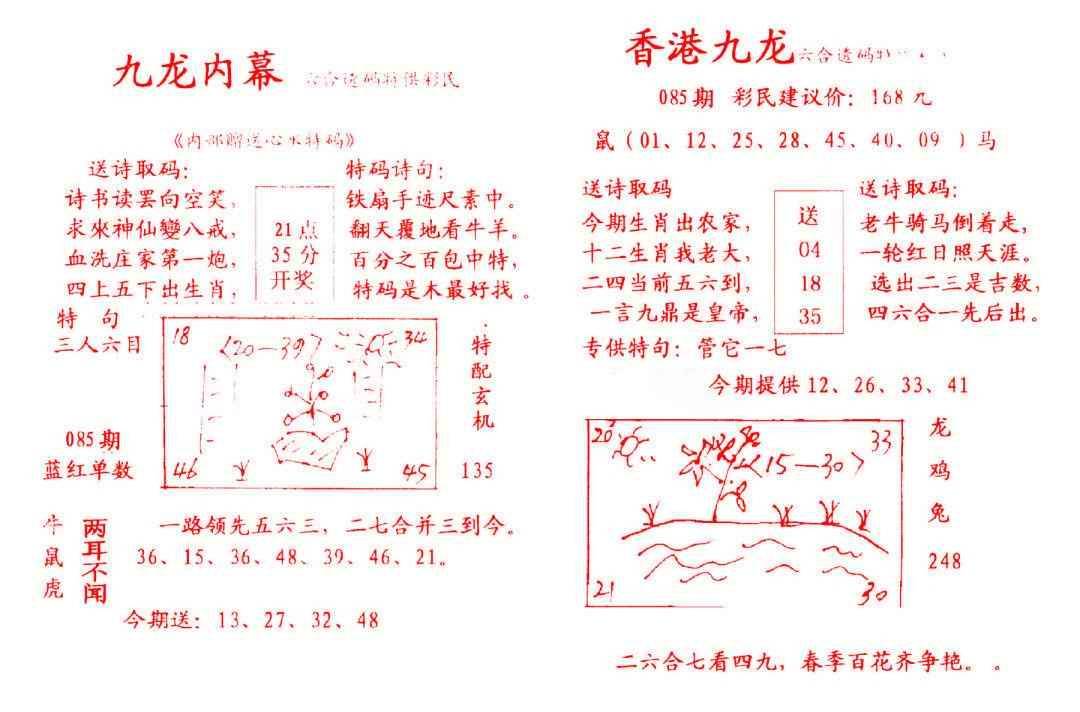 九龙内幕 六合透码特供彩民
《内部赠送心水特码》
送诗取码:
诗书读罢向空笑,
求來神仙變八戒,
血洗庄家第一炮,
四上五下出生肖,
21点
35分
开奖
特码诗句:
铁扇手迹尺素中。
翻天覆地看牛羊。
百分之百包中特,
特码是木最好找。
特 句
三人六目
085期
蓝红单数
18
〈20-39〉
34
46
45
特配玄机
135
牛鼠虎
两耳不闻
一路领先五六三, 二七合并三到今。
36、15、36、48、39、46、21。
今期送: 13、27、32、48
香港九龙 六合透码特
085期 彩民建议价: 168元
鼠(01、12、25、28、45、40、09)马
送诗取码
今期生肖出农家,
十二生肖我老大,
二四当前五六到,
一言九鼎是皇帝,
专供特句: 管它一七
送
04
18
35
送诗取码:
老牛骑马倒着走,
一轮红日照天涯。
选出二三是吉数,
四六合一先后出。
今期提供12、26、33、41
20
33
〈15-30〉
21
30
龙
鸡
兔
248
二六合七看四九, 春季百花齐争艳。 。